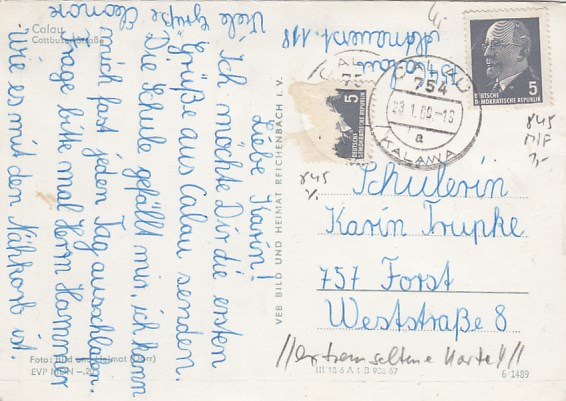 Calau
Cottbuser Straße
Liebe Karin!
Ich möchte Dir die ersten
Grüße aus Calau senden.
Die Schule gefällt mir, ich kann
mich fast jeden Tag ausschlafen.
Frage bitte mal Herrn Hammer
wie es mit den Nähkorb ist.
Viele Grüße
Eleonore
VEB BILD UND HEIMAT REICHENBACH i. V.
Foto: Bild und Heimat (Darr)
EVP MDN -,20
5
DEUTSCHE
DEMOKRATISCHE REPUBLIK
5
DEUTSCHE
DEMOKRATISCHE REPUBLIK
CALAU
754
23.1.69-16
a
KALAWA
845
M/F
3,-
845
Schülerin
Karin Trupke
757 Forst
Weststraße 8
//extrem seltene Karte!//
III 18 6 A 1 B 928 67
6 1489